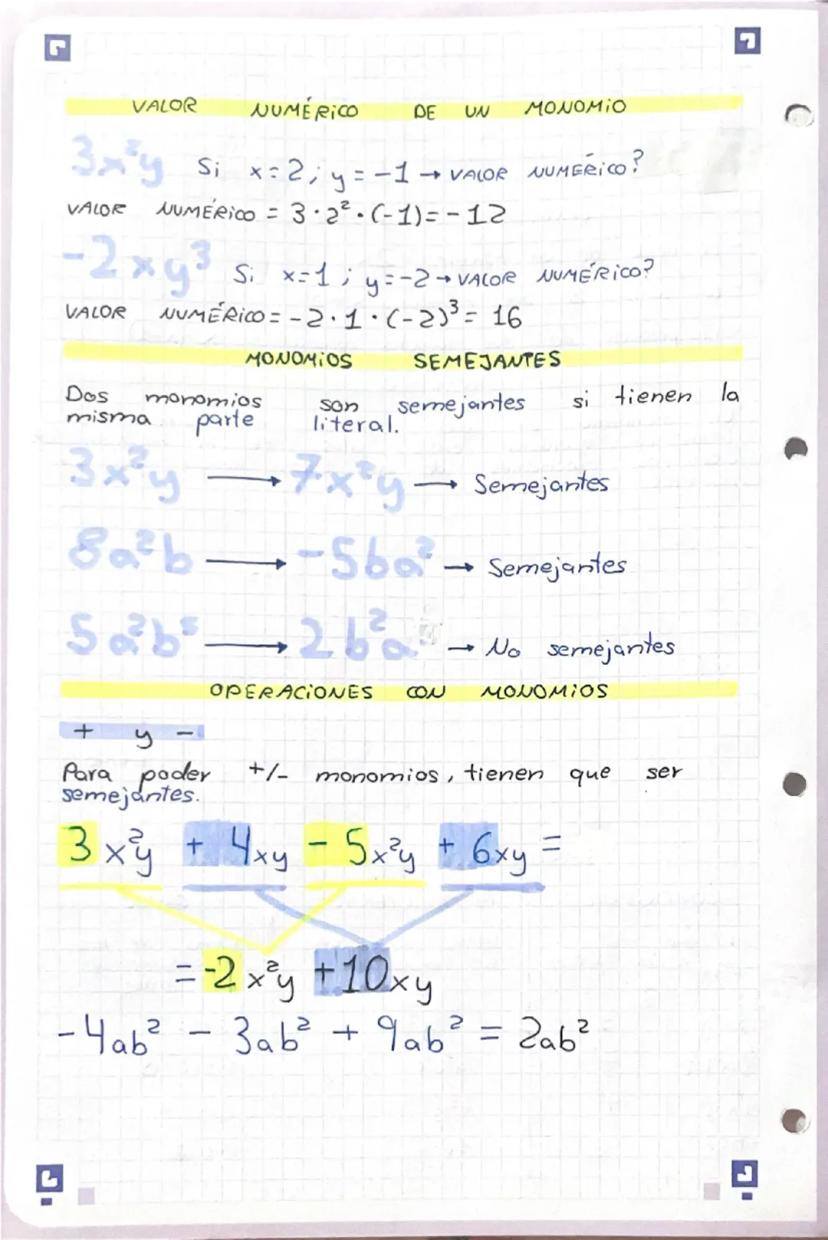 VALOR NUMÉRICO DE UN MONOMIO
3x²y Si x=2; y=-1 → VALOR NUMÉRICO?
VALOR NUMÉRICO = 3·2²·(-1)=-12
-2xy³ Si x=1; y=-2 → VALOR NUMÉRICO?
VALOR NUMÉRICO = -2·1·(-2)³= 16
MONOMIOS SEMEJANTES
Dos monomios son semejantes si tienen la
misma parte literal.
3x²y → 7x²y → Semejantes
8a²b → -5ba² → Semejantes
5a²b⁵ → 2b²a → No semejantes
OPERACIONES CON MONOMIOS
+ y -
Para poder +/- monomios, tienen que ser
semejantes.
3x²y + 4xy - 5x²y + 6xy =
= -2x²y +10xy
-4ab² - 3ab² + 9ab² = 2ab²